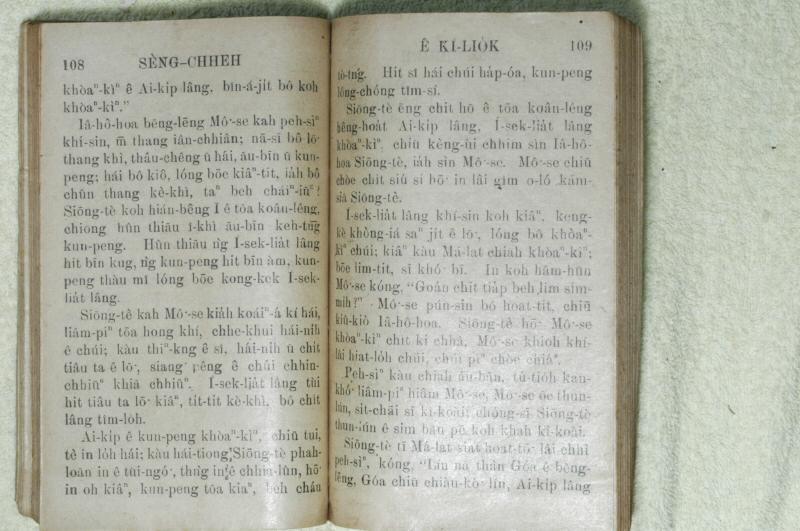 108 SÈNG-CHHEH
khòaⁿ-kìⁿ ê Ai-ki̍p lâng, bîn-á-ji̍t bô koh
khòaⁿ-kìⁿ."
Iâ-hô-hoa bēng-lēng Mô͘-se kah peh-sìⁿ
khí-sin, m̄ thang iân-chhiân; nā-sī bô lō͘
thang khì, thâu-chêng ū hái, āu-bīn ū kun-
peng; hái bô kiô, lóng bōe kiâⁿ-tit, ia̍h bô
chûn thang kè-khì, taⁿ beh cháiⁿ-iūⁿ?
Siōng-tè koh hián-bêng I ê tōa koân-lêng,
chiong hûn thiāu î-khì āu-bīn keh-tn̄g
kun-peng. Hûn thiāu n̂g Í-sek-lia̍t lâng
hit bīn kug, n̂g kun-peng hit bīn àm, kun-
peng thàu mî lóng bōe kong-kek Í-sek-
lia̍t lâng.
Siōng-tè kah Mô͘-se kia̍h koáiⁿ-á kí hái,
liâm-piⁿ tōa hong khí, chhe-khui hái-nih
ê chúi; kàu thiⁿ-kng ê sî, hái-nih ū chi̍t
tiâu ta ê lō͘, siang pêng ê chúi chhin-
chhiūⁿ khiā chhiûⁿ. Í-sek-lia̍t lâng tùi
hit tiâu ta lō͘ kiâⁿ, ti̍t-ti̍t kè-khì, bô chi̍t
lâng tîm-lo̍h.
Ai-ki̍p ê kun-peng khòaⁿ-kìⁿ, chiū tui,
tè in lo̍h hái; kàu hái-tiong, Siōng-tè phah-
loān in ê tūi-ngó͘, thǹg in ê chhia-lûn, hō͘
in oh kiâⁿ, kun-peng tōa kiaⁿ, beh cháu
Ê KÍ-LIO̍K 109
tò-tńg. Hit sî hái chúi ha̍p-óa, kun-peng
lóng-chóng tîm-sí.
Siōng-tè ēng chit hō ê tōa koân-lêng
hêng-hoa̍t Ai-ki̍p lâng, Í-sek-lia̍t lâng
khòaⁿ-kìⁿ, chiū kèng-ùi chhim sìn Iâ-hô-
hoa Siōng-tè, ia̍h sìn Mô͘-se. Mô͘-se chiū
chòe chi̍t siú si hō͘ in lâi gîm o-ló kám-
siā Siōng-tè.
Í-sek-lia̍t lâng khí-sin koh kiâⁿ, keng-
kè khòng-iá saⁿ ji̍t ê lō͘, lóng bô khòaⁿ-
kìⁿ chúi; kiâⁿ kàu Má-lat chiah khòaⁿ-kìⁿ;
bōe lim-tit, sī khó͘ bī. In koh hâm-hūn
Mô͘-se kóng, "Goán chit tia̍p beh lim sím-
mi̍h?" Mô͘-se pún-sin bô hoat-tit, chiū
kiû-kiò Iâ-hô-hoa. Siōng-tè hō͘ Mô͘-se
khòaⁿ-kìⁿ chi̍t ki chhâ, Mô͘-se khioh khí-
lâi hiat-lo̍h chúi, chúi piⁿ chòe chiáⁿ.
Peh-sìⁿ kàu chiah āu-bīn, tú-tio̍h kan-
khó͘ liâm-piⁿ hiâm Mô͘-se, Mô͘-se ōe thun-
lún, si̍t-chāi sī kî-koài; chóng-sī Siōng-tè
thun-lún ê sim bān pē koh khah kî-koài.
Siōng-tè tī Má-lat siat hoat-tō͘ lâi chhì
peh-sìⁿ, kóng, "Lín nā thàn Góa ê bēng-
lēng, Góa chiū chiàu-kò͘ lín, Ai-ki̍p lâng